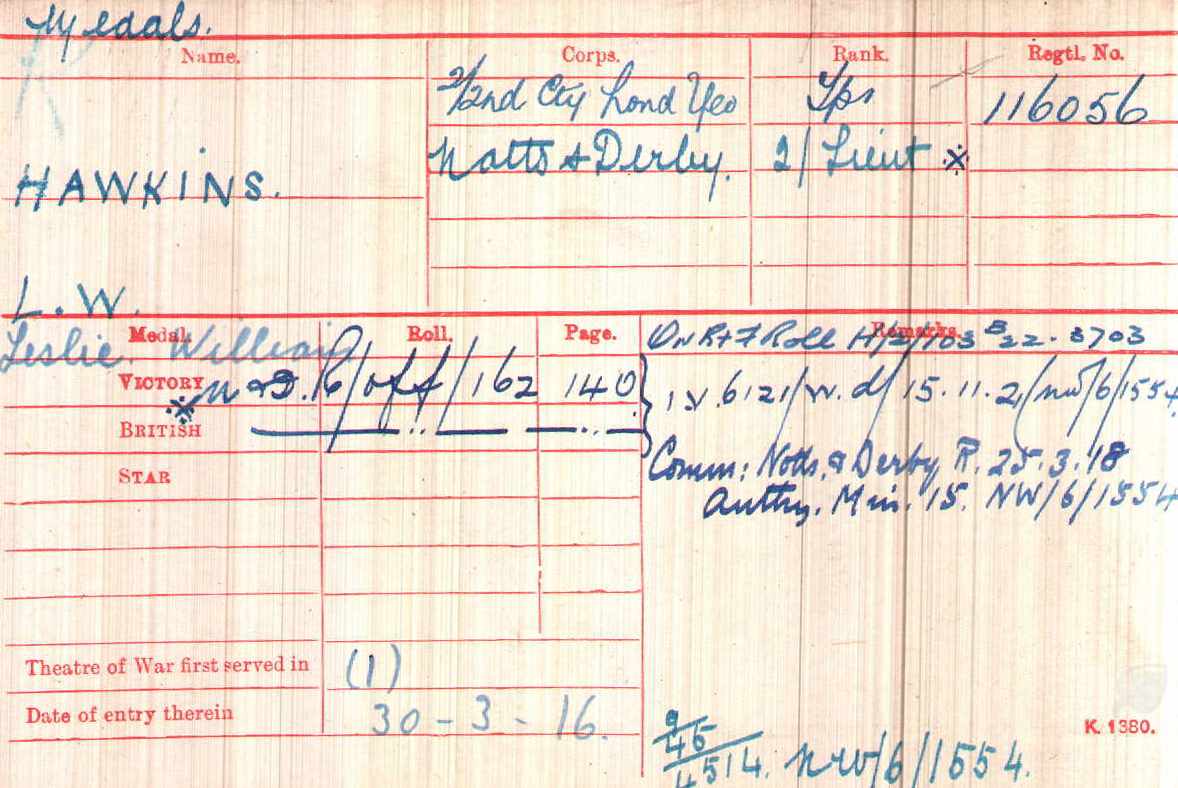 Medals.
Name. Corps. Rank. Regtl. No.
2/2nd Cty Lond Yeo Tpr 116056
Notts & Derby. 2/Lieut ※
HAWKINS.
L. W.
Leslie William
Medal. Roll. Page. Remarks.
On R & F Roll H/2/103 B22. 3703
VICTORY ※ N & D. 16/off/162 140
I.V. 6121/w.d/15.11.21/NW/6/1554
BRITISH —— .. —— —— .. ——
Comm: Notts. & Derby R. 25.3.18
STAR
Authy. Min. 15. NW/6/1554
Theatre of War first served in (1)
Date of entry therein 30-3-16.
K. 1380.
9/46
4514. NW/6/1554.